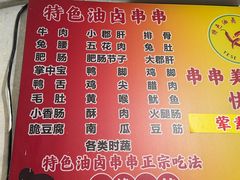 特色油卤串串
牛肉 小郡肝 排骨
兔腰 五花肉 兔肚
肥肠 肥肠节子 大郡肝
掌中宝 鸭脚 鸡
鸭舌 鸡尖 腊肉
毛肚 黄喉 鸡
小香肠 酥肉 火腿肠
脆豆腐 南瓜 豆筋
各类时蔬
特色油卤串串正宗吃法
串串美
荤